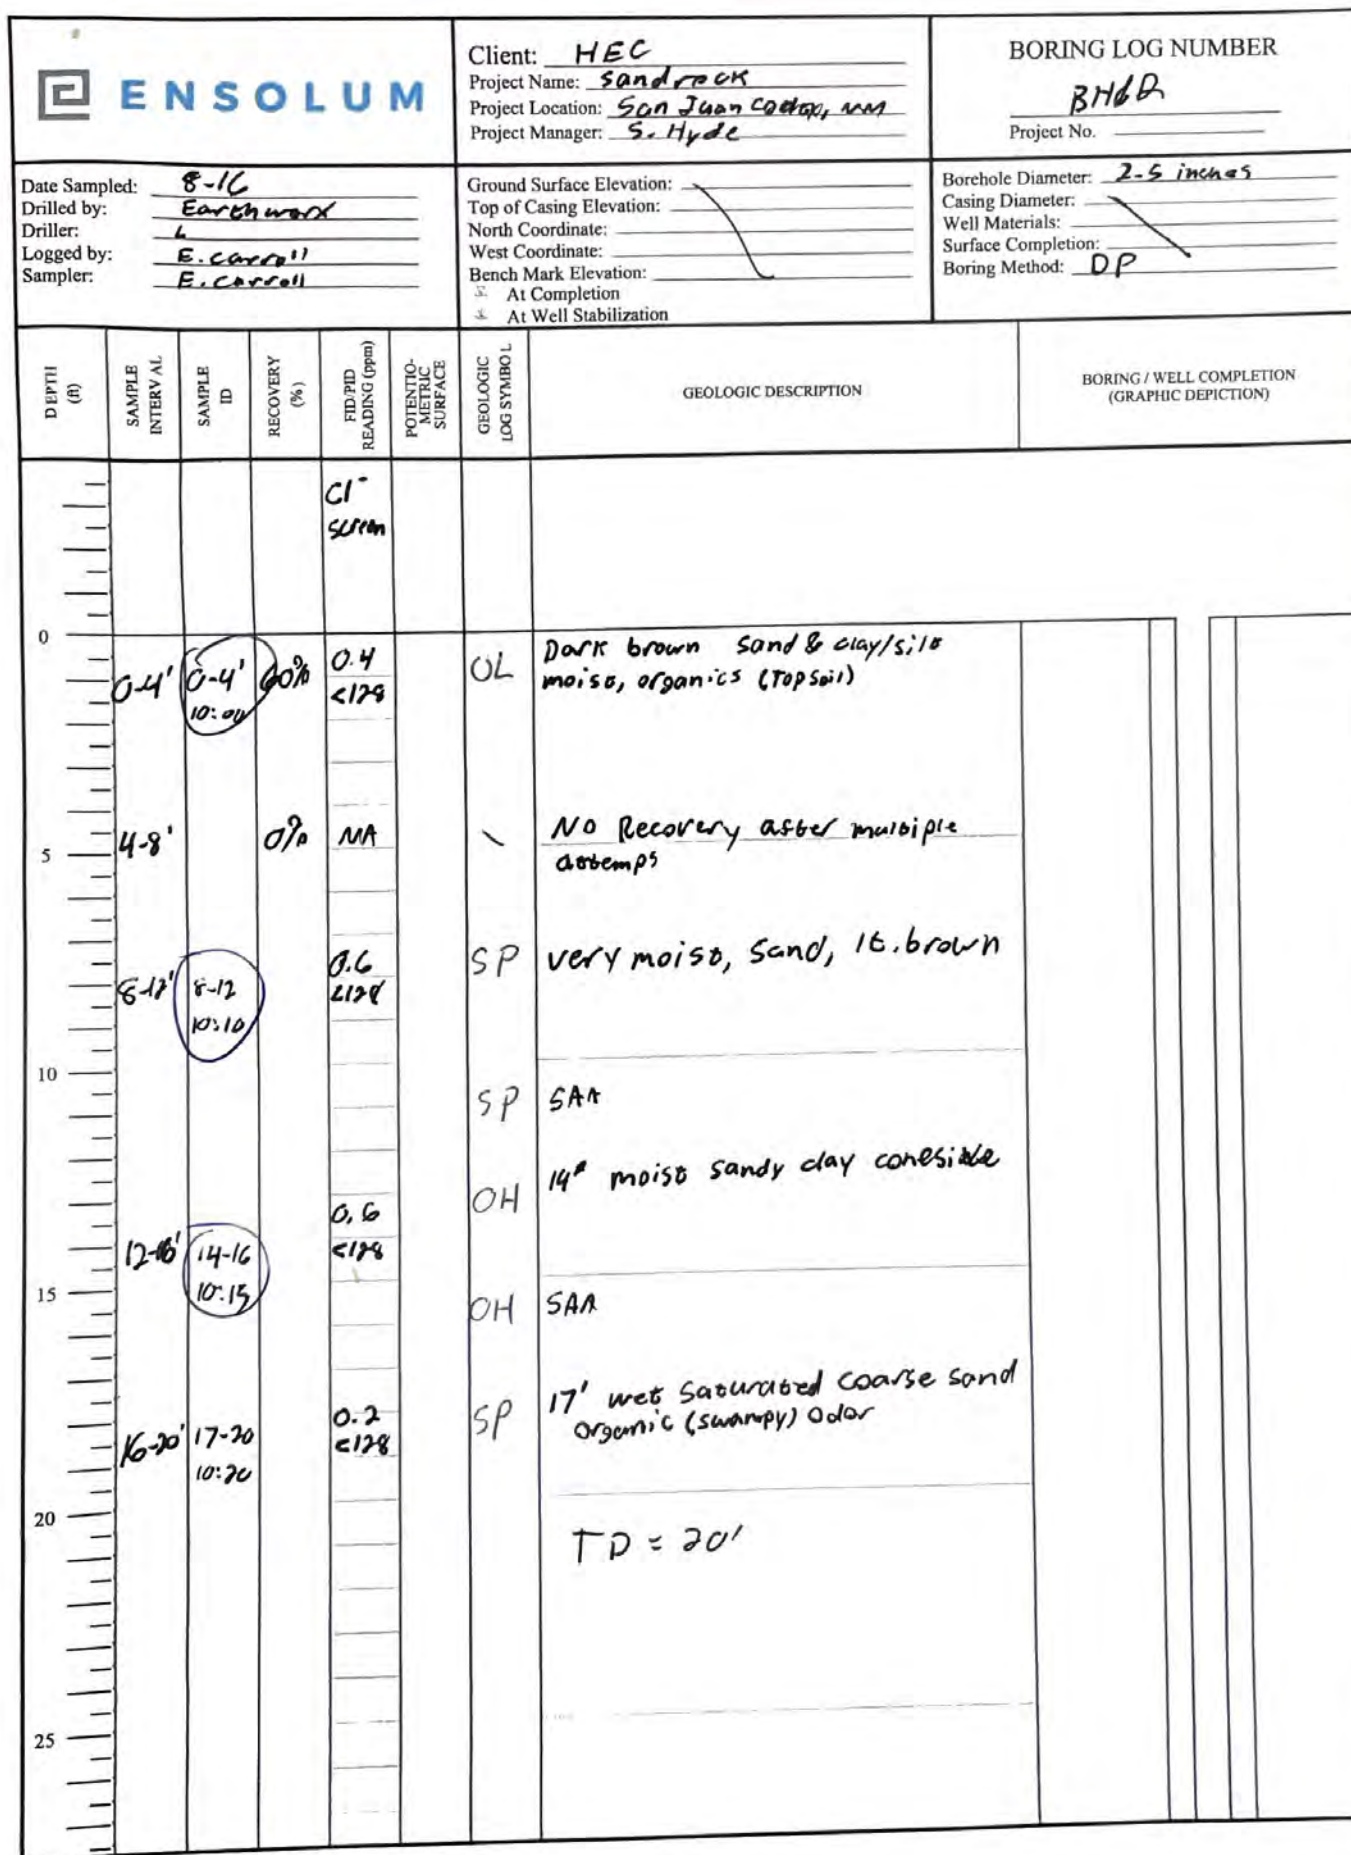 ENSOLUM
Client: HEC
Project Name: Sandrock
Project Location: San Juan, NM
Project Manager: S. Hyde
BORING LOG NUMBER
Project No.
Date Sampled: 8-16
Drilled by: Earthworx
Driller:
Logged by: E. Carroll
Sampler: E. Carroll
Ground Surface Elevation:
Top of Casing Elevation:
North Coordinate:
West Coordinate:
Bench Mark Elevation:
At Completion
At Well Stabilization
Borehole Diameter: 2-5 inches
Casing Diameter:
Well Materials:
Surface Completion:
Boring Method: DP
DEPTH (ft)
SAMPLE INTERVAL
SAMPLE ID
RECOVERY (%)
FID/PID READING (ppm)
POTENTIO-METRIC SURFACE
GEOLOGIC LOG SYMBOL
GEOLOGIC DESCRIPTION
BORING / WELL COMPLETION
(GRAPHIC DEPICTION)
Cl-
screen
0
0-4' 0-4' 60% 0.4 OL Dark brown sand & clay/silt
10:00 <128 moist, organics (Topsoil)
4-8' 0% NA No Recovery after multiple
5
attemps
0.6 SP very moist, Sand, lt. brown
8-12' 8-12 <128
10:10
10
SP SAA
14" moist sandy clay
OH
0.6
12-16' 14-16 <128
10:15
15
OH SAA
17' wet saturated coarse sand
0.2 SP organic (swampy) odor
16-20' 17-20 <128
10:20
20
TD = 20'
25